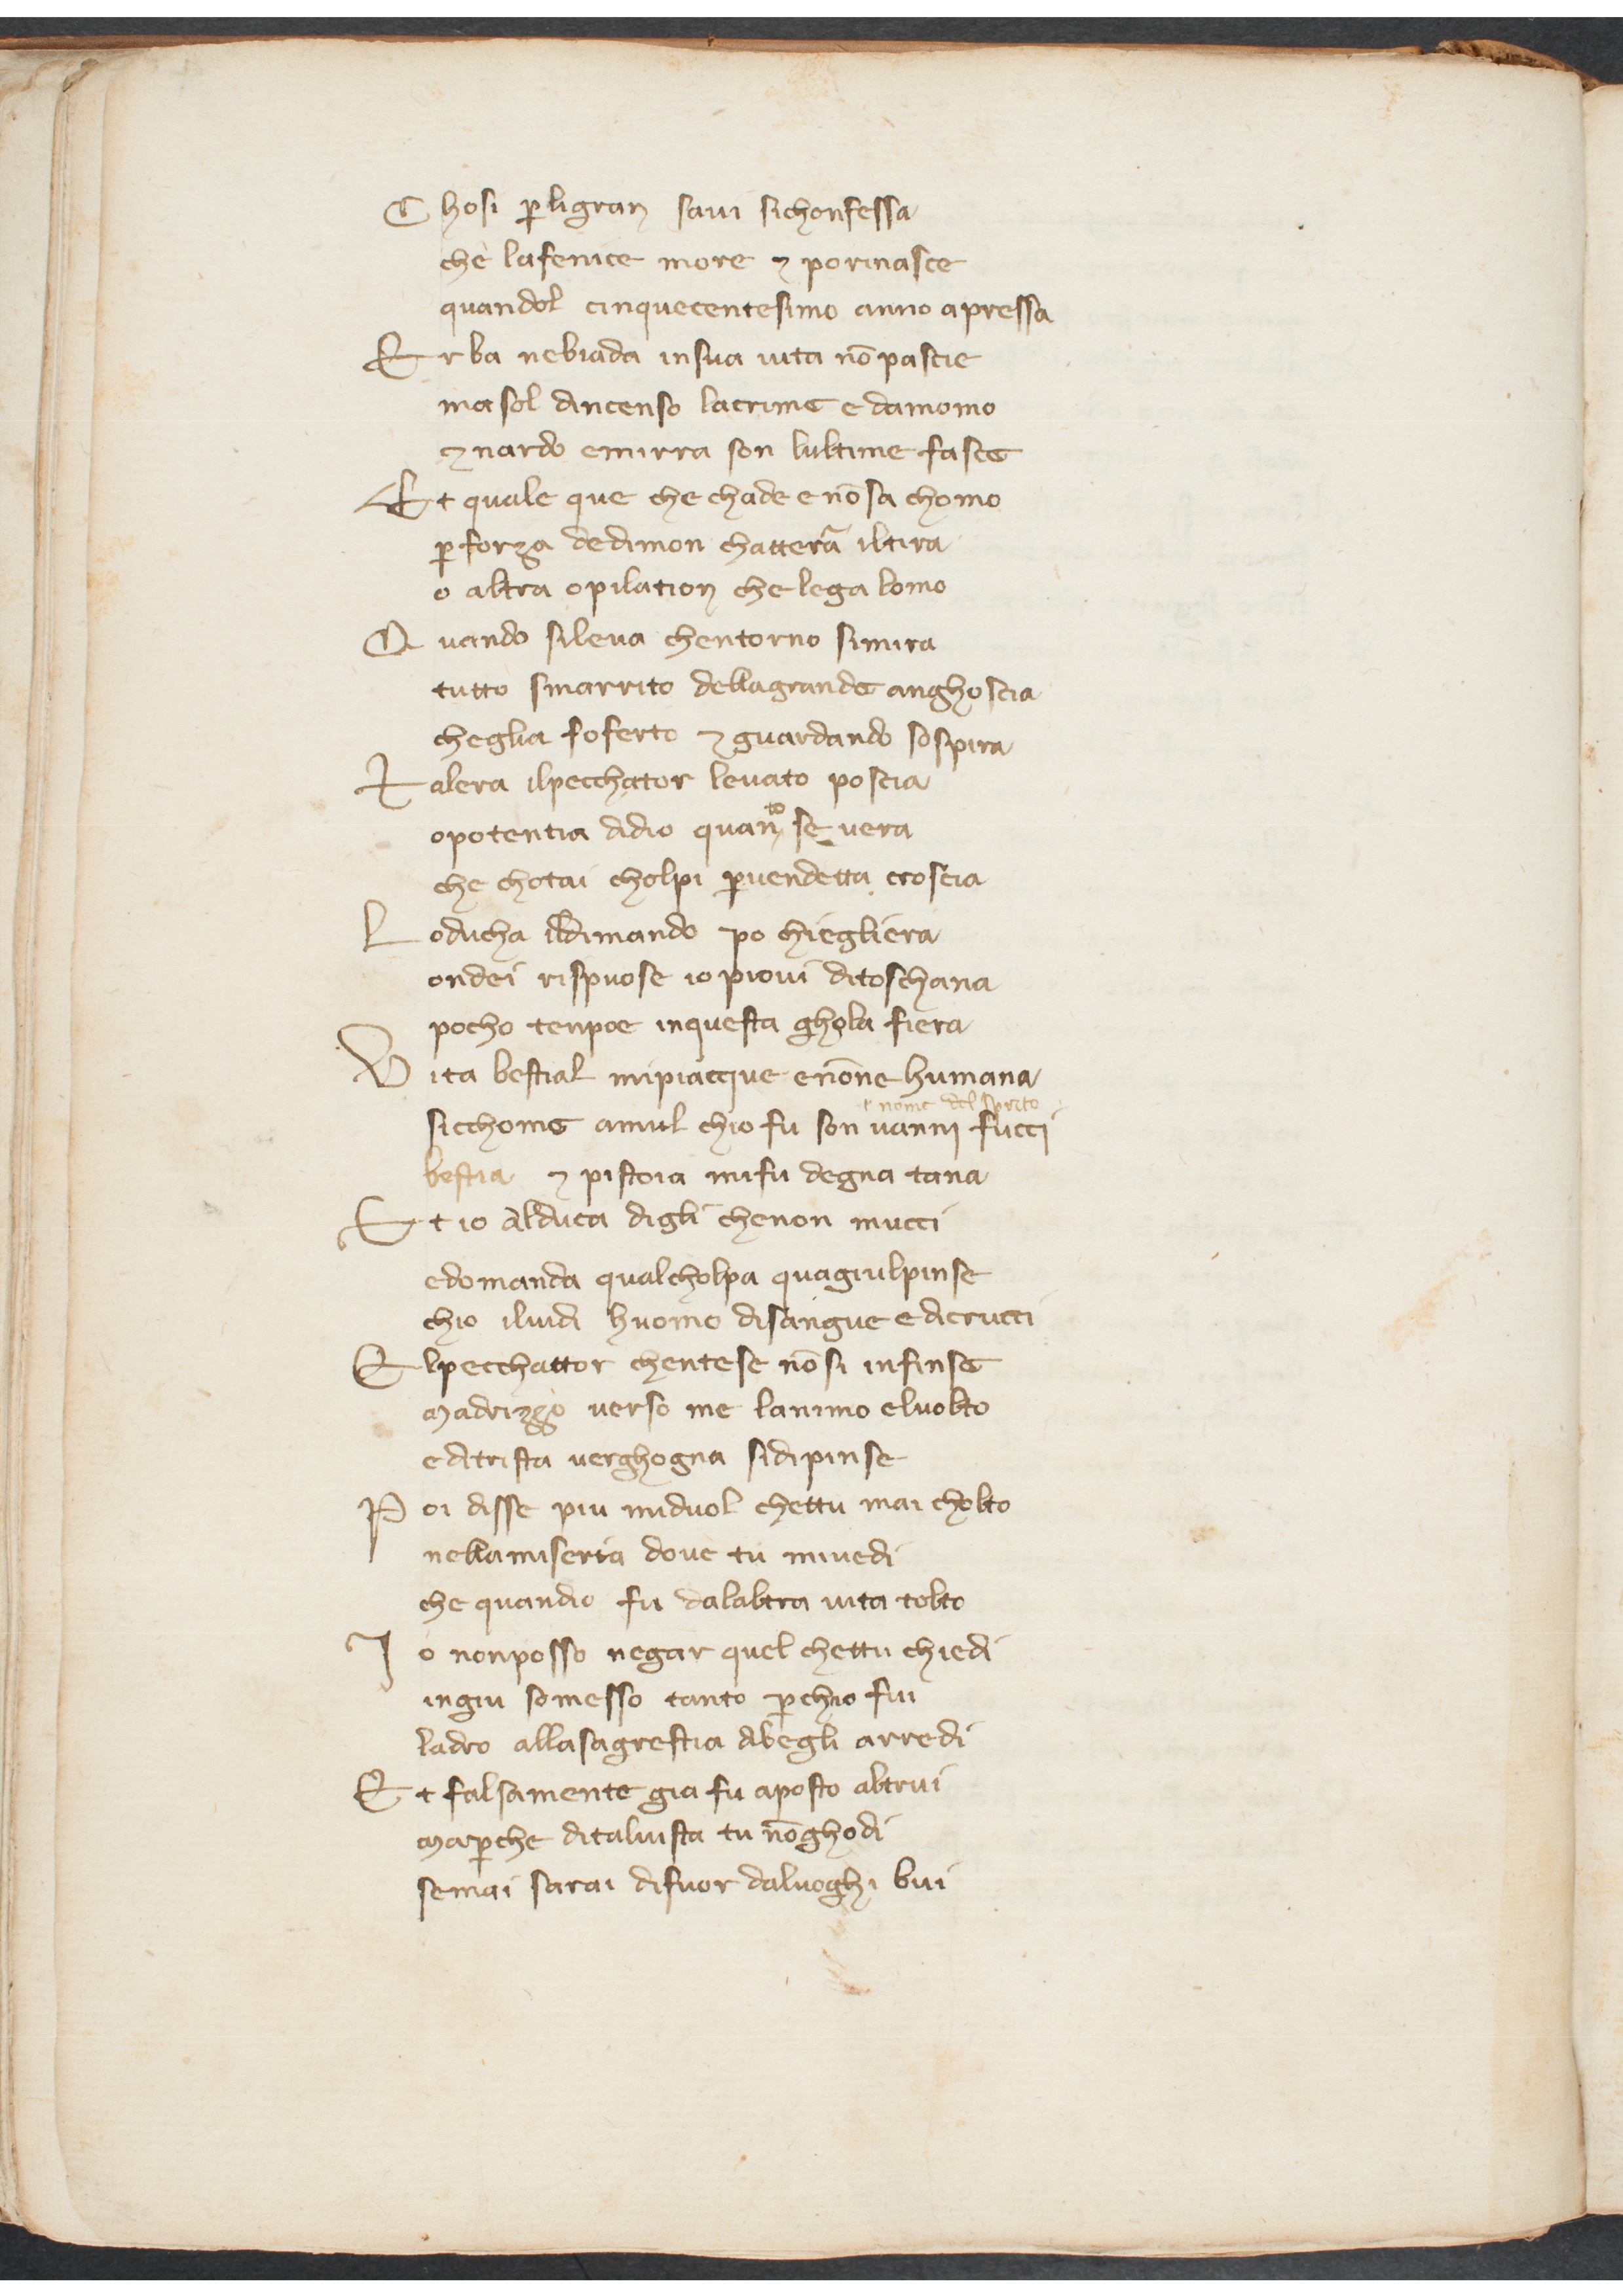 Chosi ꝑligran saui sichonfessa
che lafenice more ⁊ porinasce
quandol cinquecentesimo anno apressa
Erba nebiada insua uita nō pascie
ma sol dincenso lacrime e damomo
⁊ nardo emirra son lultime fasce
Et quale que che chade e nō sa chomo
ꝑ forza dedimon chatterā iltira
o altra opilation che lega lomo
Quando sileua chentorno simira
tutto smarrito dellagrande anghoscia
cheglia soferto ⁊ guardando sospira
Talera ilpecchator leuato poscia
opotentia didio quanto se uera
che chotai cholpi ꝑuendetta croscia
Loducha ildimando po chiegliera
ondei rispuose io piovi ditoschana
pocho tenpoe inquesta ghola fiera
Vita bestial mipiacque enōne humana
e nome del spirito
sicchome amul chio fu son uanni fucci
bestia ⁊ pistoia mifu degna tana
Et io alduca digli chenon mucci
edomanda qualcholpa quagiulpinse
chio iluidi huomo disangue e dicrucci
Elpecchattor chentese nō si infinse
madrizzo verso me lanimo eluolto
editrista verghogna sidipinse
Poi disse piu miduol chettu mai cholto
nellamiseria doue tu miuedi
che quandio fu dalaltra uita tolto
Io nonposso negar quel chettu chiedi
ingiu somesso tanto ꝑchio fui
ladro allasagrestia dibegli arredi
Et falsamente gia fu aposto altrui
maꝑche ditaluista tu nōghodi
semai sarai difuor daluoghi bui